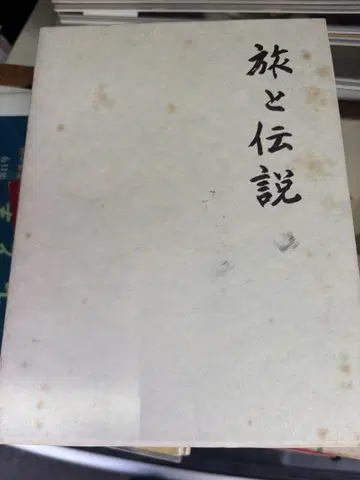 旅と伝説